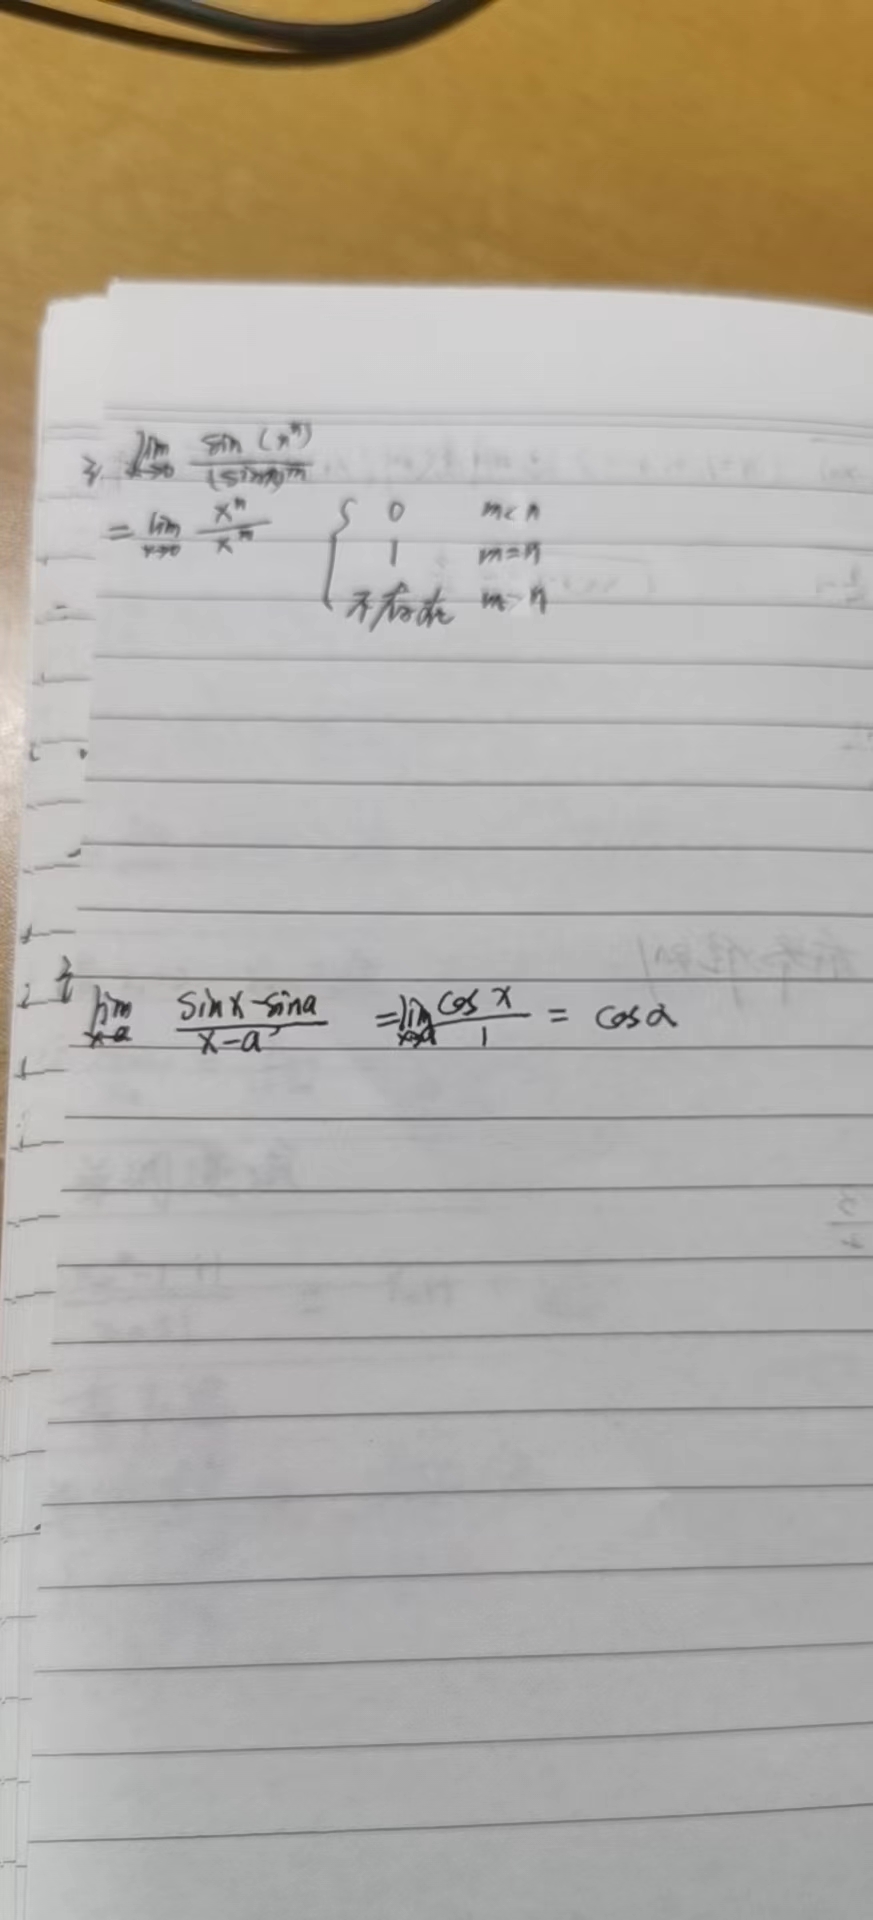 lim x→0 sin(xⁿ)/(sinx)ᵐ
= lim x→0 xⁿ/xᵐ { 0 m<n
1 m=n
不存在 m>n
lim x→a (sinx-sina)/(x-a) = lim x→a cosx/1 = cosa